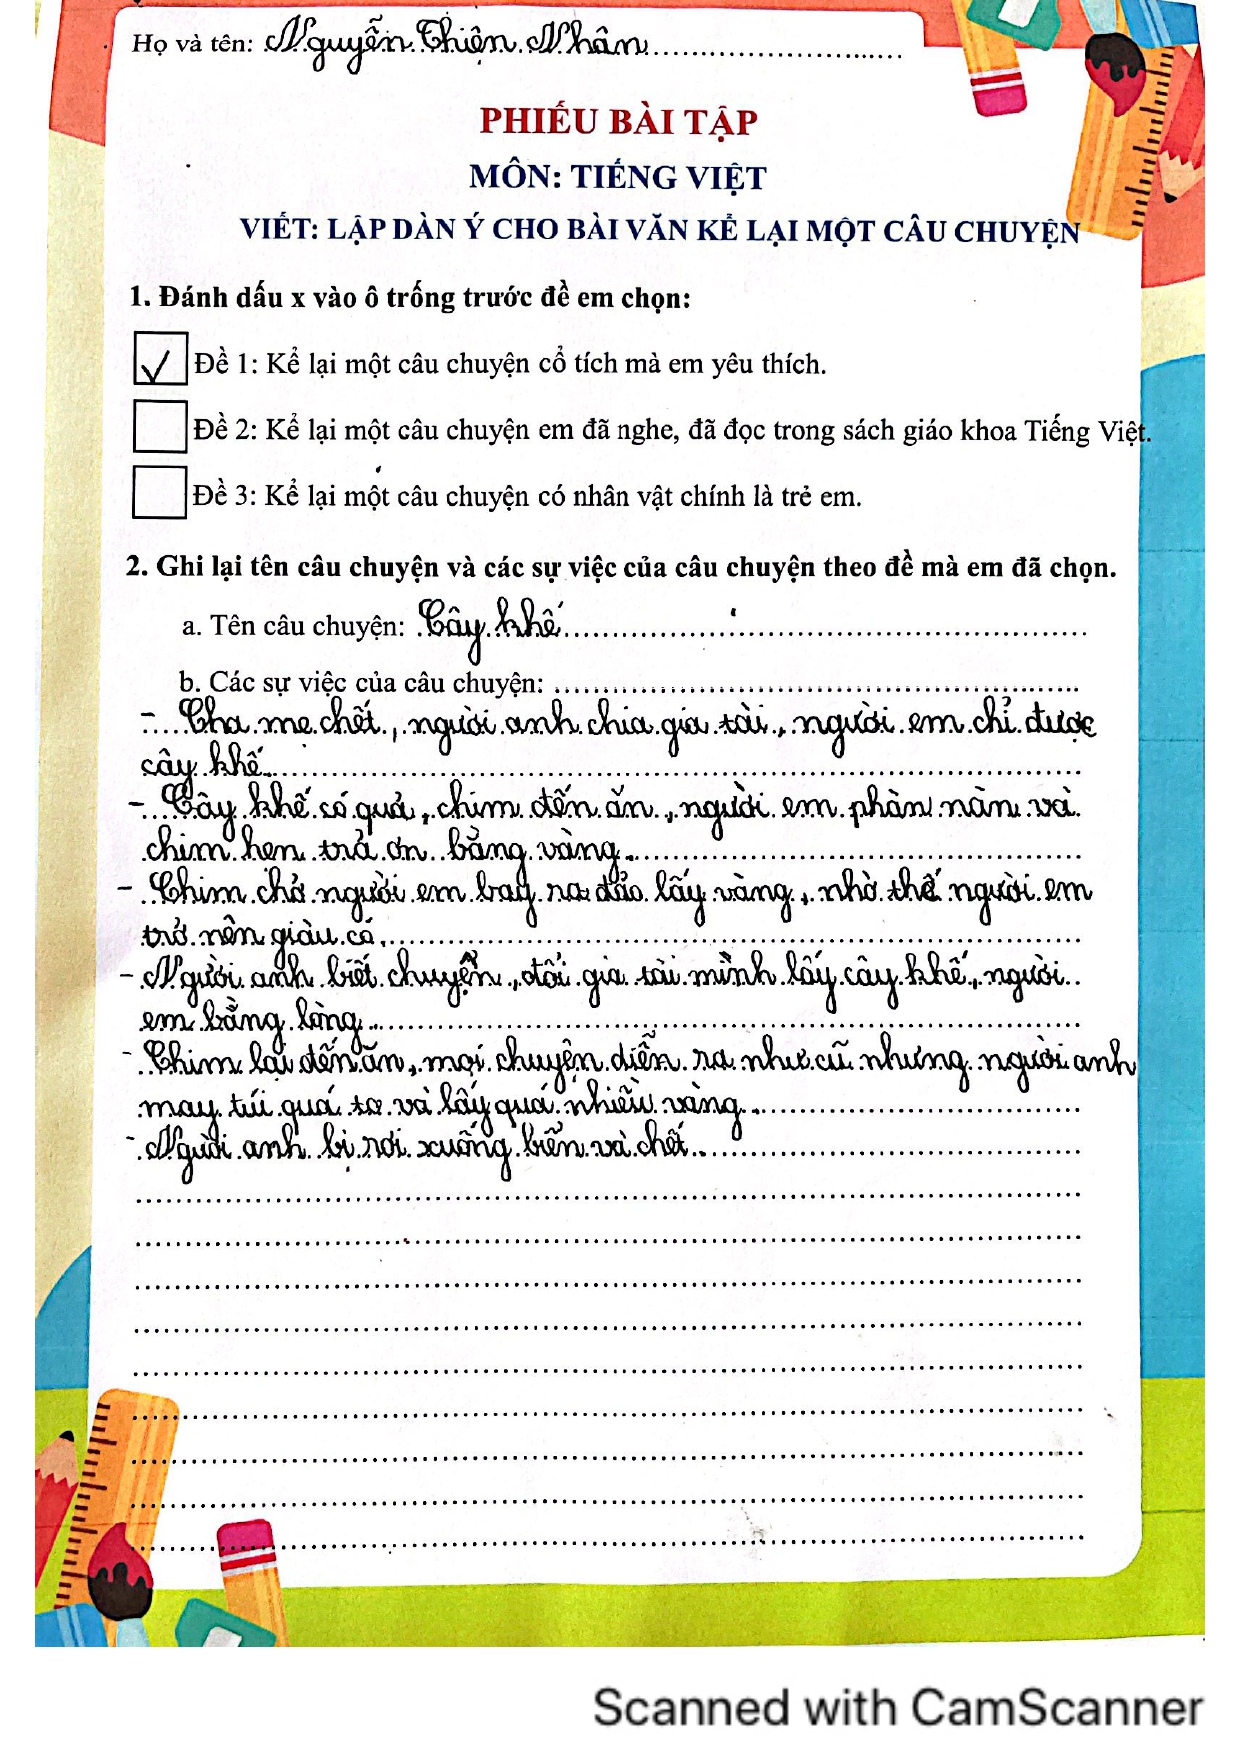 Họ và tên: Nguyễn Thiện Nhân
PHIẾU BÀI TẬP
MÔN: TIẾNG VIỆT
VIẾT: LẬP DÀN Ý CHO BÀI VĂN KỂ LẠI MỘT CÂU CHUYỆN
1. Đánh dấu x vào ô trống trước đề em chọn:
Đề 1: Kể lại một câu chuyện cổ tích mà em yêu thích.
Đề 2: Kể lại một câu chuyện em đã nghe, đã đọc trong sách giáo khoa Tiếng Việt.
Đề 3: Kể lại một câu chuyện có nhân vật chính là trẻ em.
2. Ghi lại tên câu chuyện và các sự việc của câu chuyện theo đề mà em đã chọn.
a. Tên câu chuyện: Cây khế
b. Các sự việc của câu chuyện:
- Cha mẹ chết, người anh chia gia tài, người em chỉ được
cây khế.
- Cây khế có quả, chim đến ăn, người em phàn nàn và
chim hẹn trả ơn bằng vàng.
- Chim chở người em bay ra đảo lấy vàng, nhờ thế người em
trở nên giàu có.
- Người anh biết chuyện, đổi gia tài mình lấy cây khế, người
em bằng lòng.
- Chim lại đến ăn, mọi chuyện diễn ra như cũ nhưng người anh
may túi quá to và lấy quá nhiều vàng.
- Người anh bị rơi xuống biển và chết.
Scanned with CamScanner